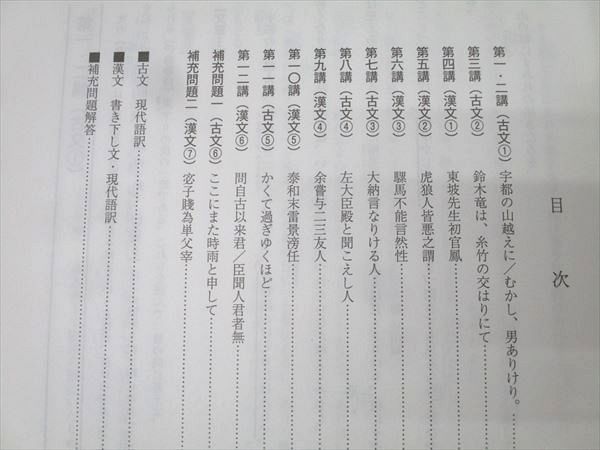 目 次
第一・二講（古文①）宇都の山越えに／むかし、男ありけり。
第三講（古文②）鈴木竜は、糸竹の交はりにて
第四講（漢文①）東坡先生初官鳳
第五講（漢文②）虎狼人皆悪之謂
第六講（漢文③）騾馬不能言然性
第七講（古文③）大納言なりける人
第八講（古文④）左大臣殿と聞こえし人
第九講（漢文④）余嘗与二三友人
第一〇講（漢文⑤）泰和末雷景滂任
第一一講（古文⑤）かくて過ぎゆくほど
第一二講（漢文⑥）問自古以来君／臣聞人君者無
補充問題一（古文⑥）ここにまた時雨と申して
補充問題二（漢文⑦）宓子賤為単父宰
■古文 現代語訳
■漢文 書き下し文・現代語訳
■補充問題解答